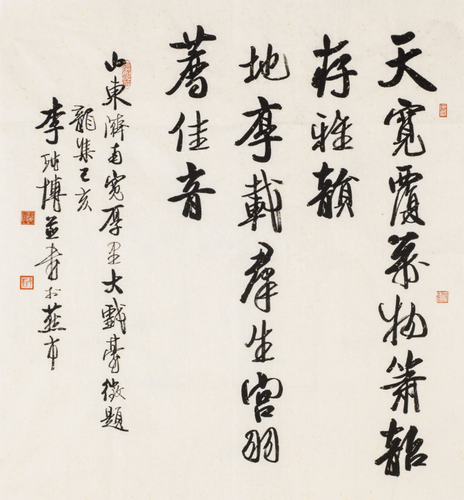 天寬覆萬物簫韶
存雅韻
地厚載羣生宮羽
薈佳音
山東濟南寬厚里大戲臺徵題
龍集己亥
李博並書於燕市